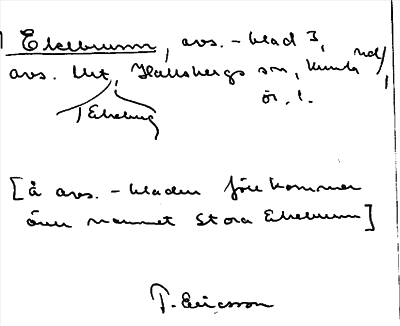 Ekebrunn, avs. - blad 3,
avs. Urt, Hallsbergs sn, Kumla hd,
Ekeberg ör. l.
[Å avs. - bladen förekommer
även namnet Stora Ekebrunn]
T. Ericsson